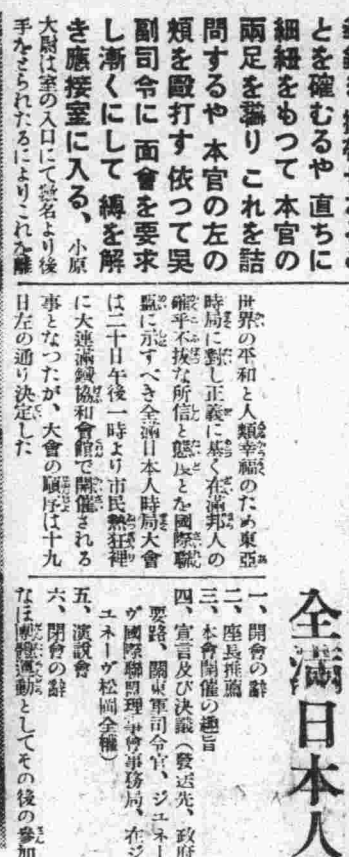 とを確むるや 直ちに
細紐をもつて 本官の
兩足を縛り これを詰
問するや 本官の左の
頬を毆打す 依つて吳
副司令に 面會を要求
し漸くにして 縛を解
き應接室に入る、小原
大尉は室の入口にて無名より後
手をとられたるによりこれを離
世界の平和と人類幸福のため東亞
時局に對し正義に基く在滿邦人の
確乎不拔な所信と態度とを國際聯
盟に示すべき全滿日本人時局大會
は二十日午後一時より市民熱狂裡
に大連滿鐵協和會館で開催される
事となつたが、大會の順序は十九
日左の通り決定した
全滿日本人
一、開會の辭
二、座長推薦
三、本會開催の趣旨
四、宣言及び決議(發送先、政府
要路、關東軍司令官、ジユネー
ヴ國際聯盟理事會事務局、在ジ
ユネーヴ松岡全權)
五、演說會
六、閉會の辭
なほ團體運動としてその後の參加